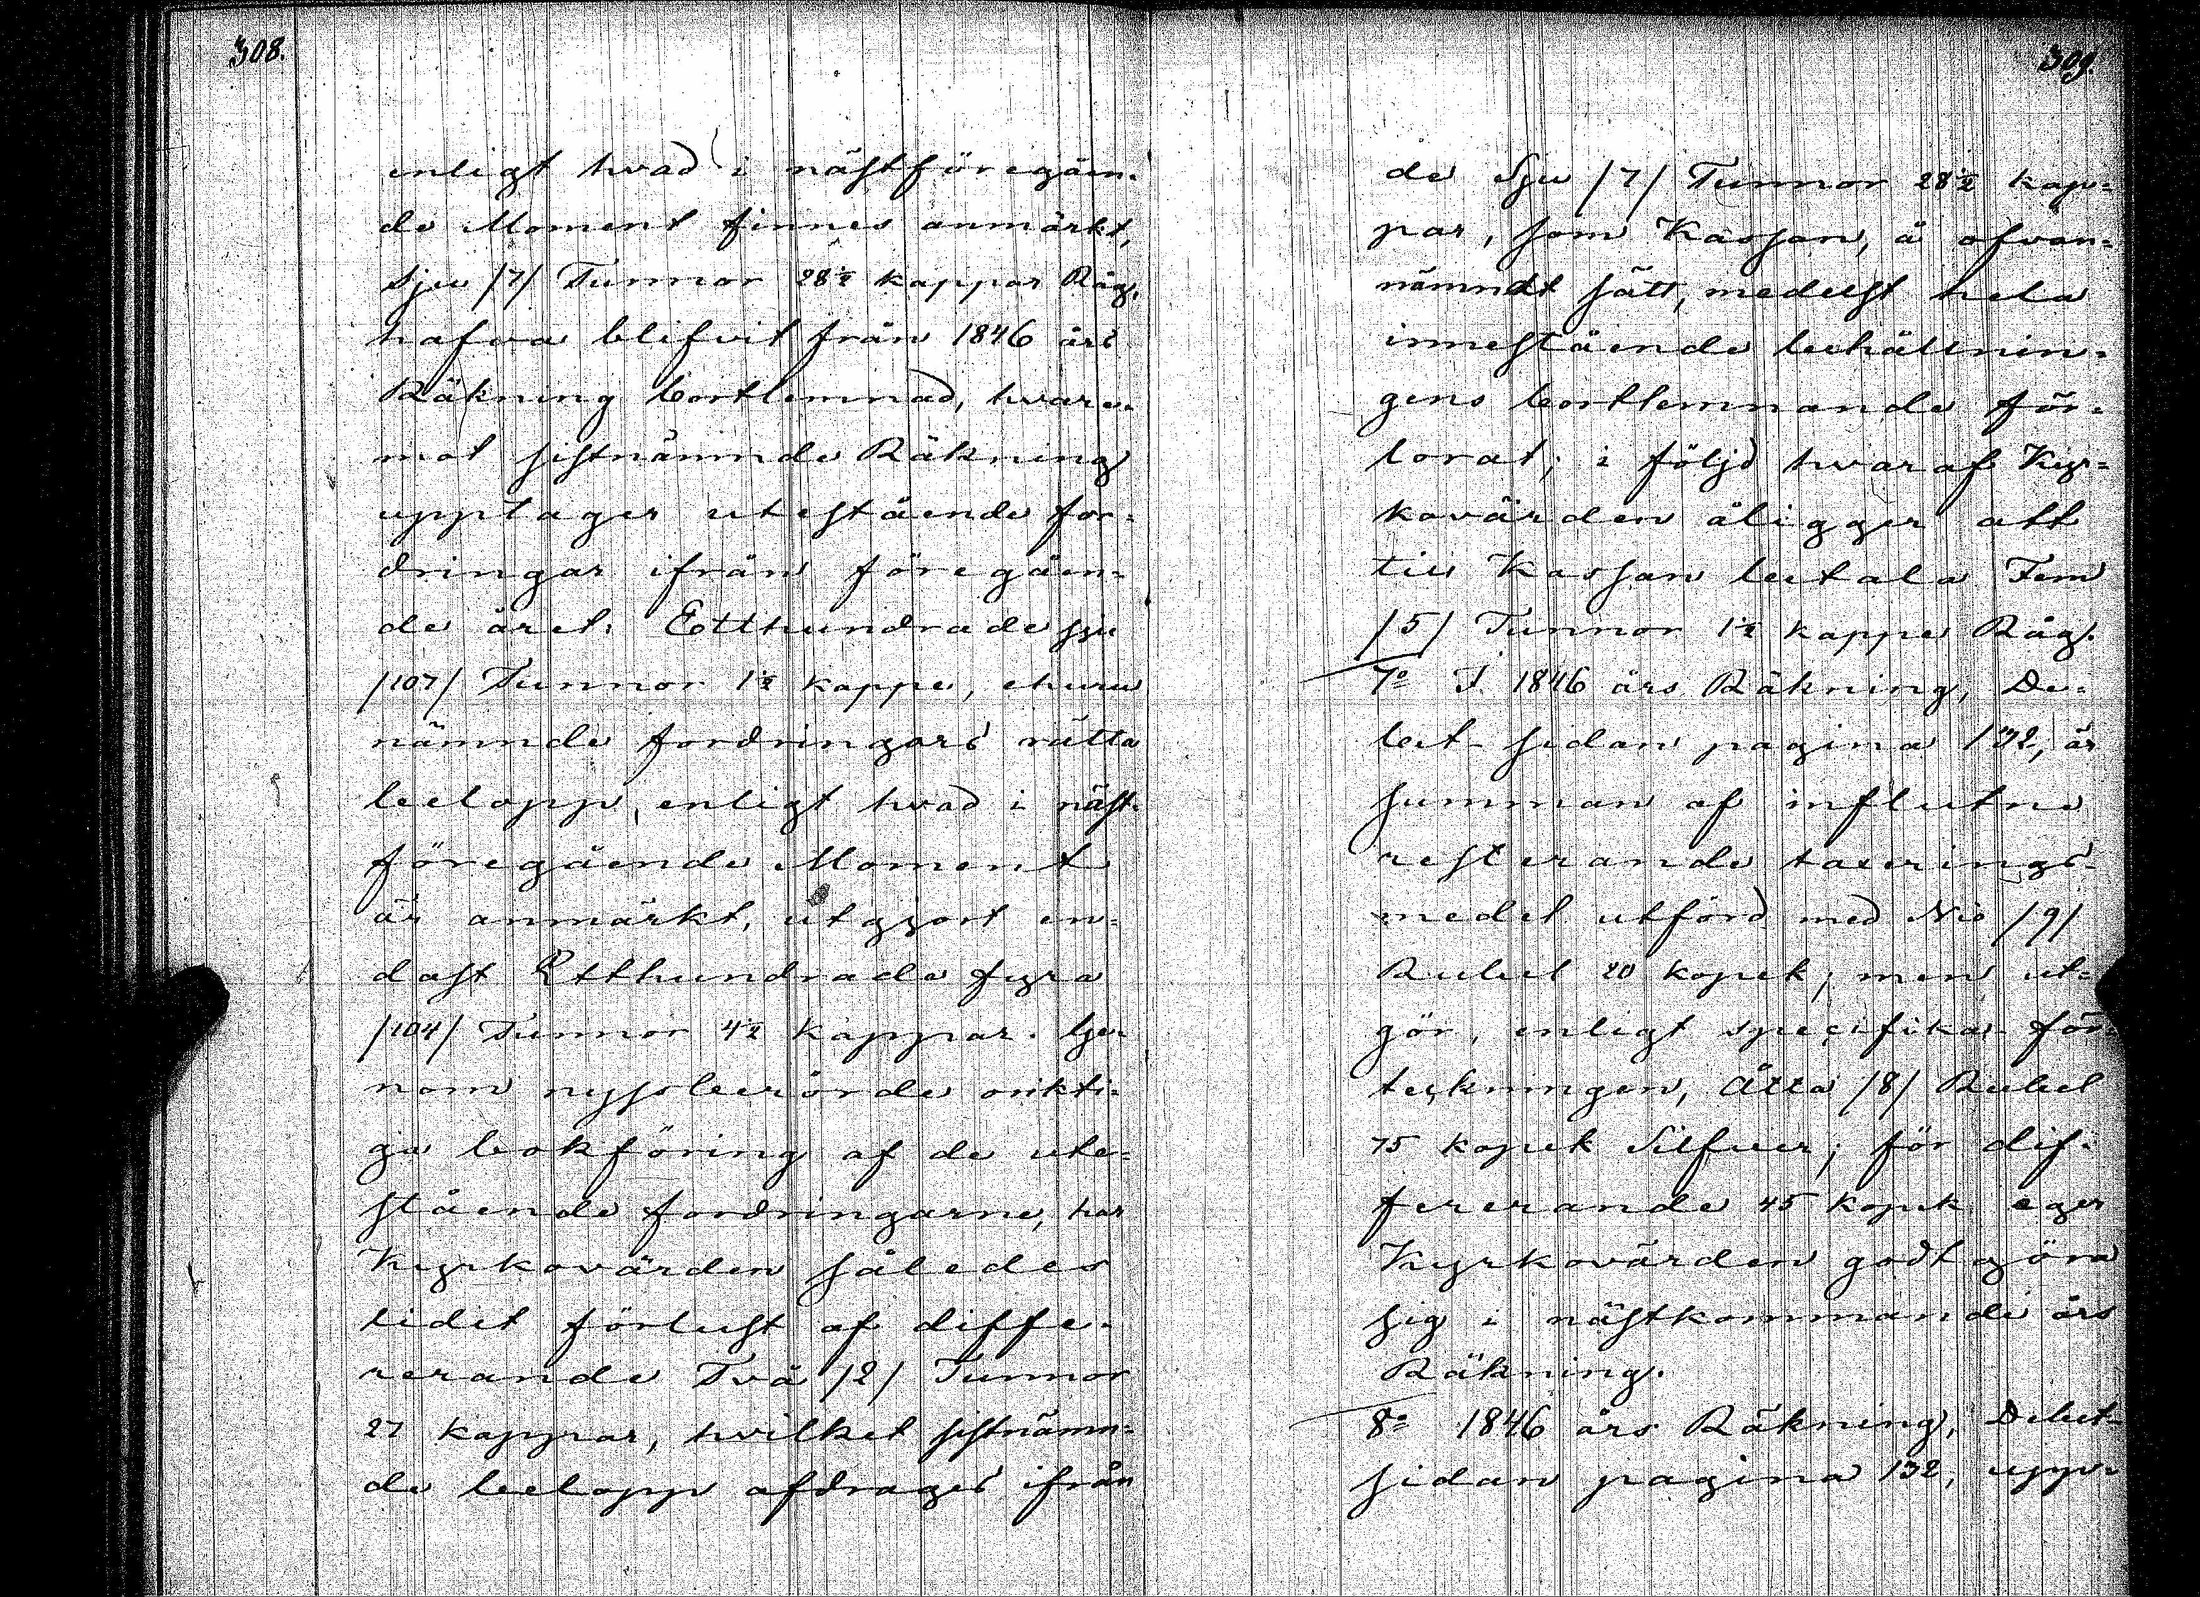 308.
enligt hvad i nästföregåen-
de Moment finnes anmärkt,
Sju /7/ Tunnor 28½ kappar Råg,
hafva blifvit från 1846 års
Räkning bortlemnad, hvare-
mot sistnämnde Räkning
upptager utestående for-
dringar ifrån föregåen-
de året, Etthundrade sju
/107/ Tunnor 1½ kappe, ehuru
nämnde fordringars rätta
belopp, enligt hvad i näst-
föregående Moment
är anmärkt, utgjort en-
dast Etthundrade fyra
/104/ Tunnor 4½ kappar. Ge-
nom nyssberörde orikti-
ga bokföring af de ute-
stående fordringarne, har
Kyrkovärden således
lidit förlust af diffe-
rerande Två /2/ Tunnor
27 kappar, hvilket sistnämn-
de belopp afdrages ifrån
309.
de Sju /7/ Tunnor 28½ kap-
par, som Kassan, å ofvan-
nämndt sätt, medelst hela
innestående behållnin-
gens bortlemnande för-
lorat; i följd hvaraf Kyr-
kovärden åligger att
till Kassan betala Fem
/5/ Tunnor 1½ kappe Råg.
7o I 1846 års Räkning, De-
bet-sidan pagina 132, är
summan af influtne
resterande taxerings-
medel utförd med Nio /9/
Rubel 20 kopek; men ut-
gör, enligt specifika för-
teckningen, Åtta /8/ Rubel
75 kopek Silfver; för dif-
fererande 45 kopek eger
Kyrkovärden godtgöra
sig i nästkommande års
Räkning.
8o 1846 års Räkning, Debet-
sidan pagina 132, upp-